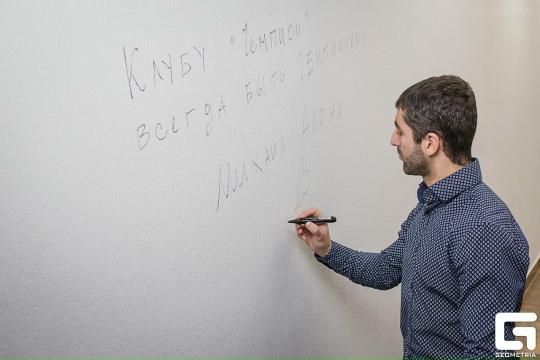 Клубу "Чемпион"
всегда быть чемпионами
Михаил
GEOMETRIA